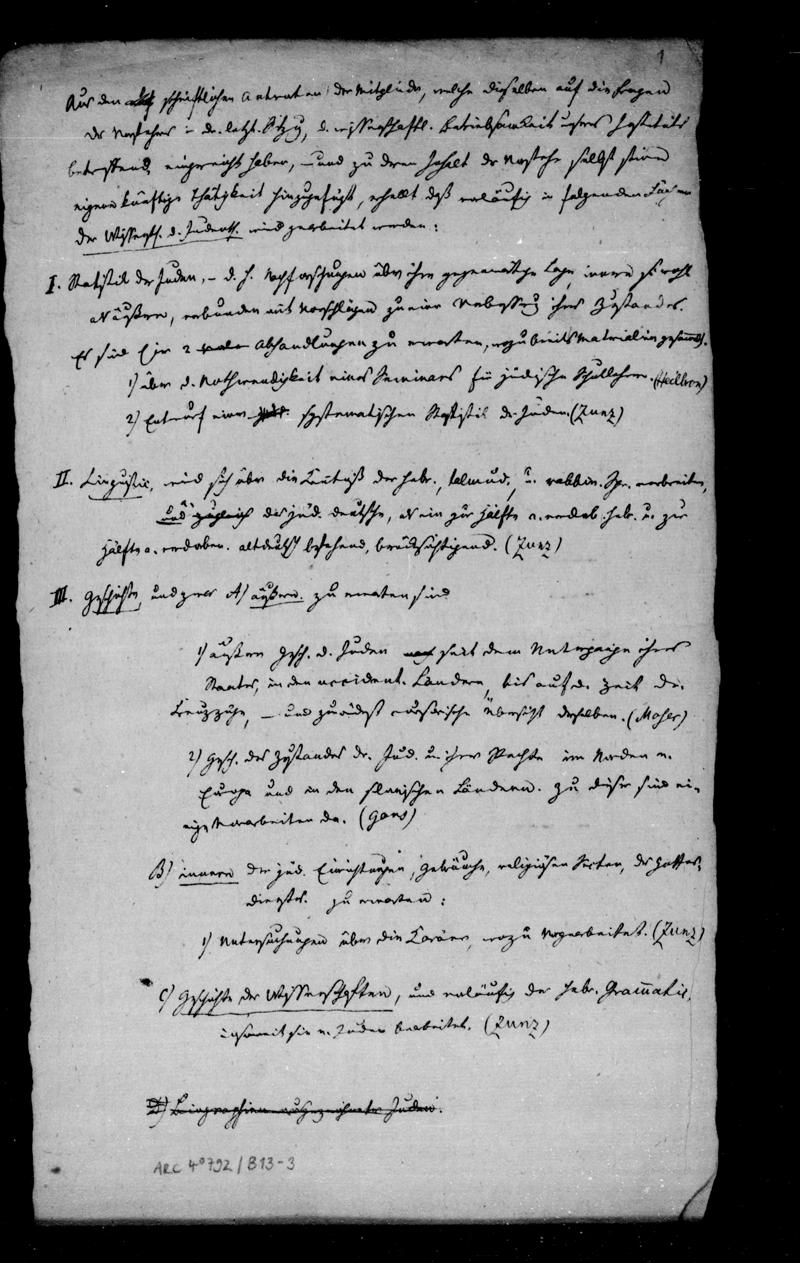 1
Aus den schriftlichen Antworten der Mitglieder, welche dieselben auf die Fragen
des Vorstehers in der letzt. Sitzg, d. wissenschaftl. Betriebsamkeit unsres Instituts
betreffend, eingereicht haben, – und zu deren Inhalt der Vorsteher selbst seine
eigene künftige Thätigkeit hinzugefügt, erhellt daß vorläufig in folgenden Fächern
der Wissensch. d. Judenth. wird gearbeitet werden:
I. Statistik der Juden, – d. h. Nachforschungen über ihre gegenwärtige Lage, innere sowohl
als äußere, verbunden mit Vorschlägen zu einer Verbesserg ihres Zustandes.
Es sind hier 2 Abhandlungen zu erwarten, wozu bereits Materialien gesammelt.
1) über d. Nothwendigkeit eines Seminars für jüdische Schullehrer. (Heilbron)
2) Entwurf einer systematischen Statistik der Juden. (Zunz)
II. Linguistik, wird sich über die Kentniß der hebr., talmud., u. rabbin. Spr. verbreiten,
und zugleich das jüd. deutsche, als ein zur Hälfte a. verdorb. hebr. u. zur
Hälfte a. verdorben. altdeutsch bestehend, berücksichtigend. (Zunz)
III. Geschichte, und zwar A) äußere. zu erwarten sind
1) äußere Gesch. d. Juden seit dem Untergange ihres
Staates, in den occident. Ländern, bis auf d. Zeit der
Kreuzzüge, – und zunächst Übersicht derselben. (Moser)
2) Gesch. des Zustandes der Jud. u. ihrer Rechte im Norden v.
Europa und in den slavischen Ländern. zu dieser sind ei-
nige Vorarbeiten da. (Gans)
B) innere der jüd. Einrichtungen, Gebräuche, religiösen Secten, des Gottes-
dienstes. zu erwarten:
1) Untersuchungen über die Karäer, wozu vorgearbeitet. (Zunz)
C) Geschichte der Wissenschaften, und vorläufig der hebr. Grammatik,
insoweit sie v. Juden bearbeitet. (Zunz)
D) Biographien ausgezeichneter Juden.
ARC 4° 792/B13-3